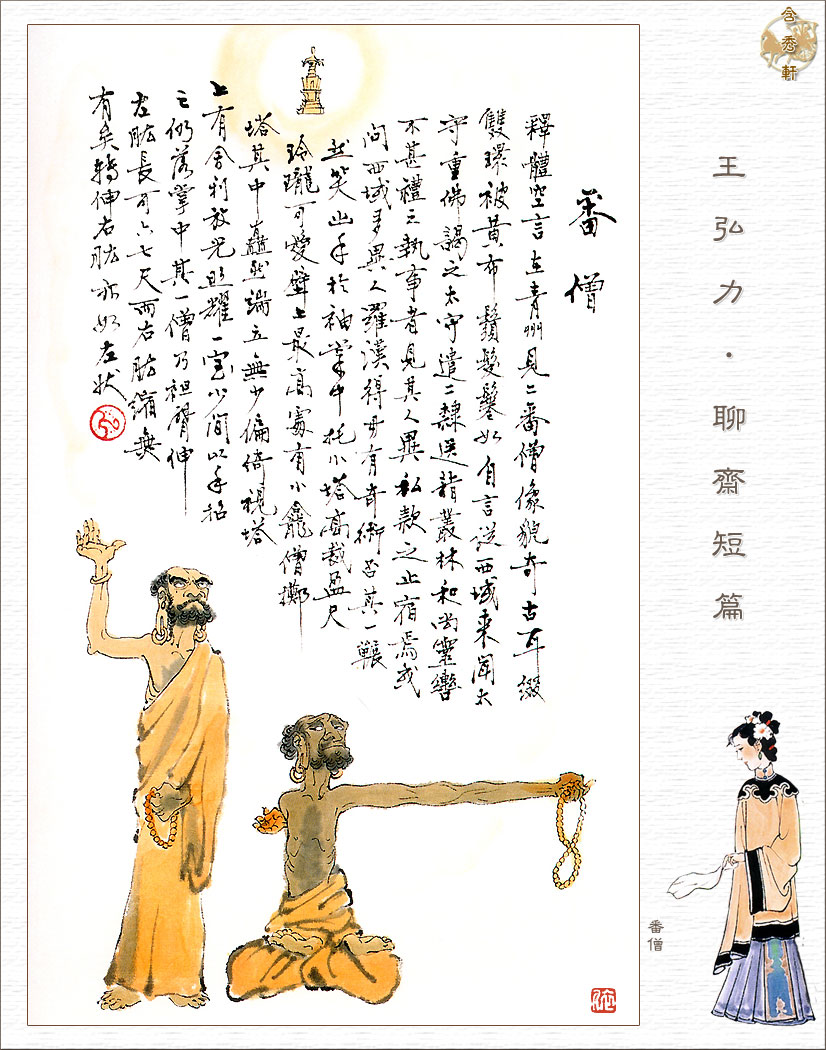 含秀軒
王弘力·聊齋短篇
番僧
釋體空言在青州見二番僧像貌奇古耳綴
雙環被黃布鬚髮鬈如自言從西域來聞太
守重佛謁之太守遣二隸送詣叢林和尚靈轡
不甚禮之執事者見其人異私款之止宿焉或
問西域多異人羅漢得毋有奇術否其一囅
然笑出手於袖掌中托小塔高裁盈尺
玲瓏可愛壁上最高處有小龕僧擲
塔其中矗然端立無少偏倚視塔
上有舍利放光照耀一室少間以手招
之仍落掌中其一僧乃袒臂伸
左肱長可六七尺而右肱縮無
有矣轉伸右肱亦如左狀
番僧